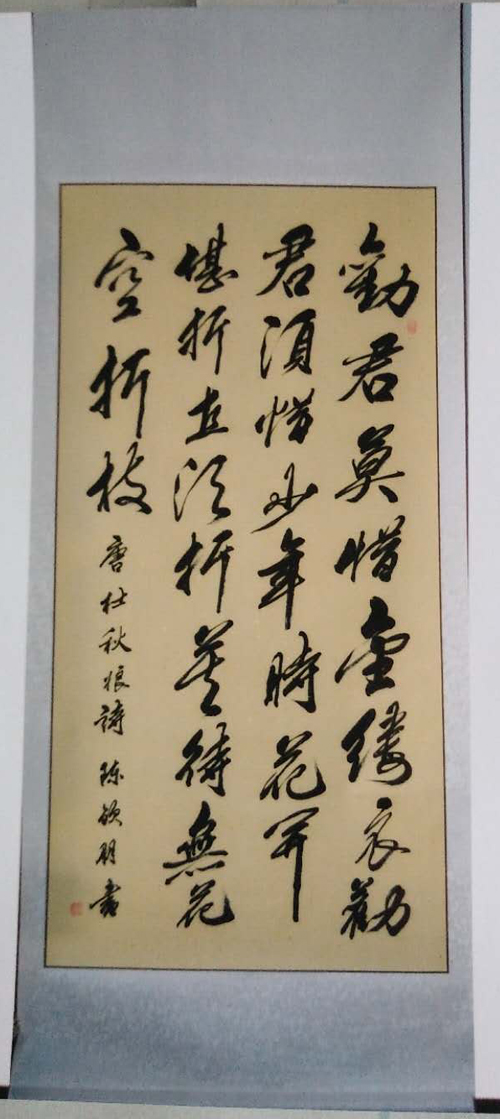 勸君莫惜金缕衣勸
君須惜少年時花开
堪折直須折莫待無花
空折枝
唐杜秋娘詩 陈欣明書